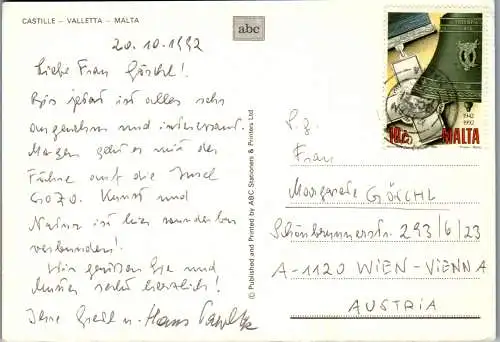 CASTILLE – VALLETTA – MALTA
abc
20.10.1992
Liebe Frau Göschl!
Bis jetzt ist alles sehr
angenehm und interessant.
Morgen geht es mit der
Fähre auf die Insel
GOZO. Kunst und
Natur ist hier wunderbar
verbunden!
Wir grüßen Sie und
sehr herzlich!
Ihre u. Hans
© Published and Printed by ABC Stationers & Printers Ltd
1942
1992
MALTA
Frau
Margarete GÖSCHL
Schönbrunnerstr. 293/6/23
A-1120 WIEN-VIENNA
AUSTRIA